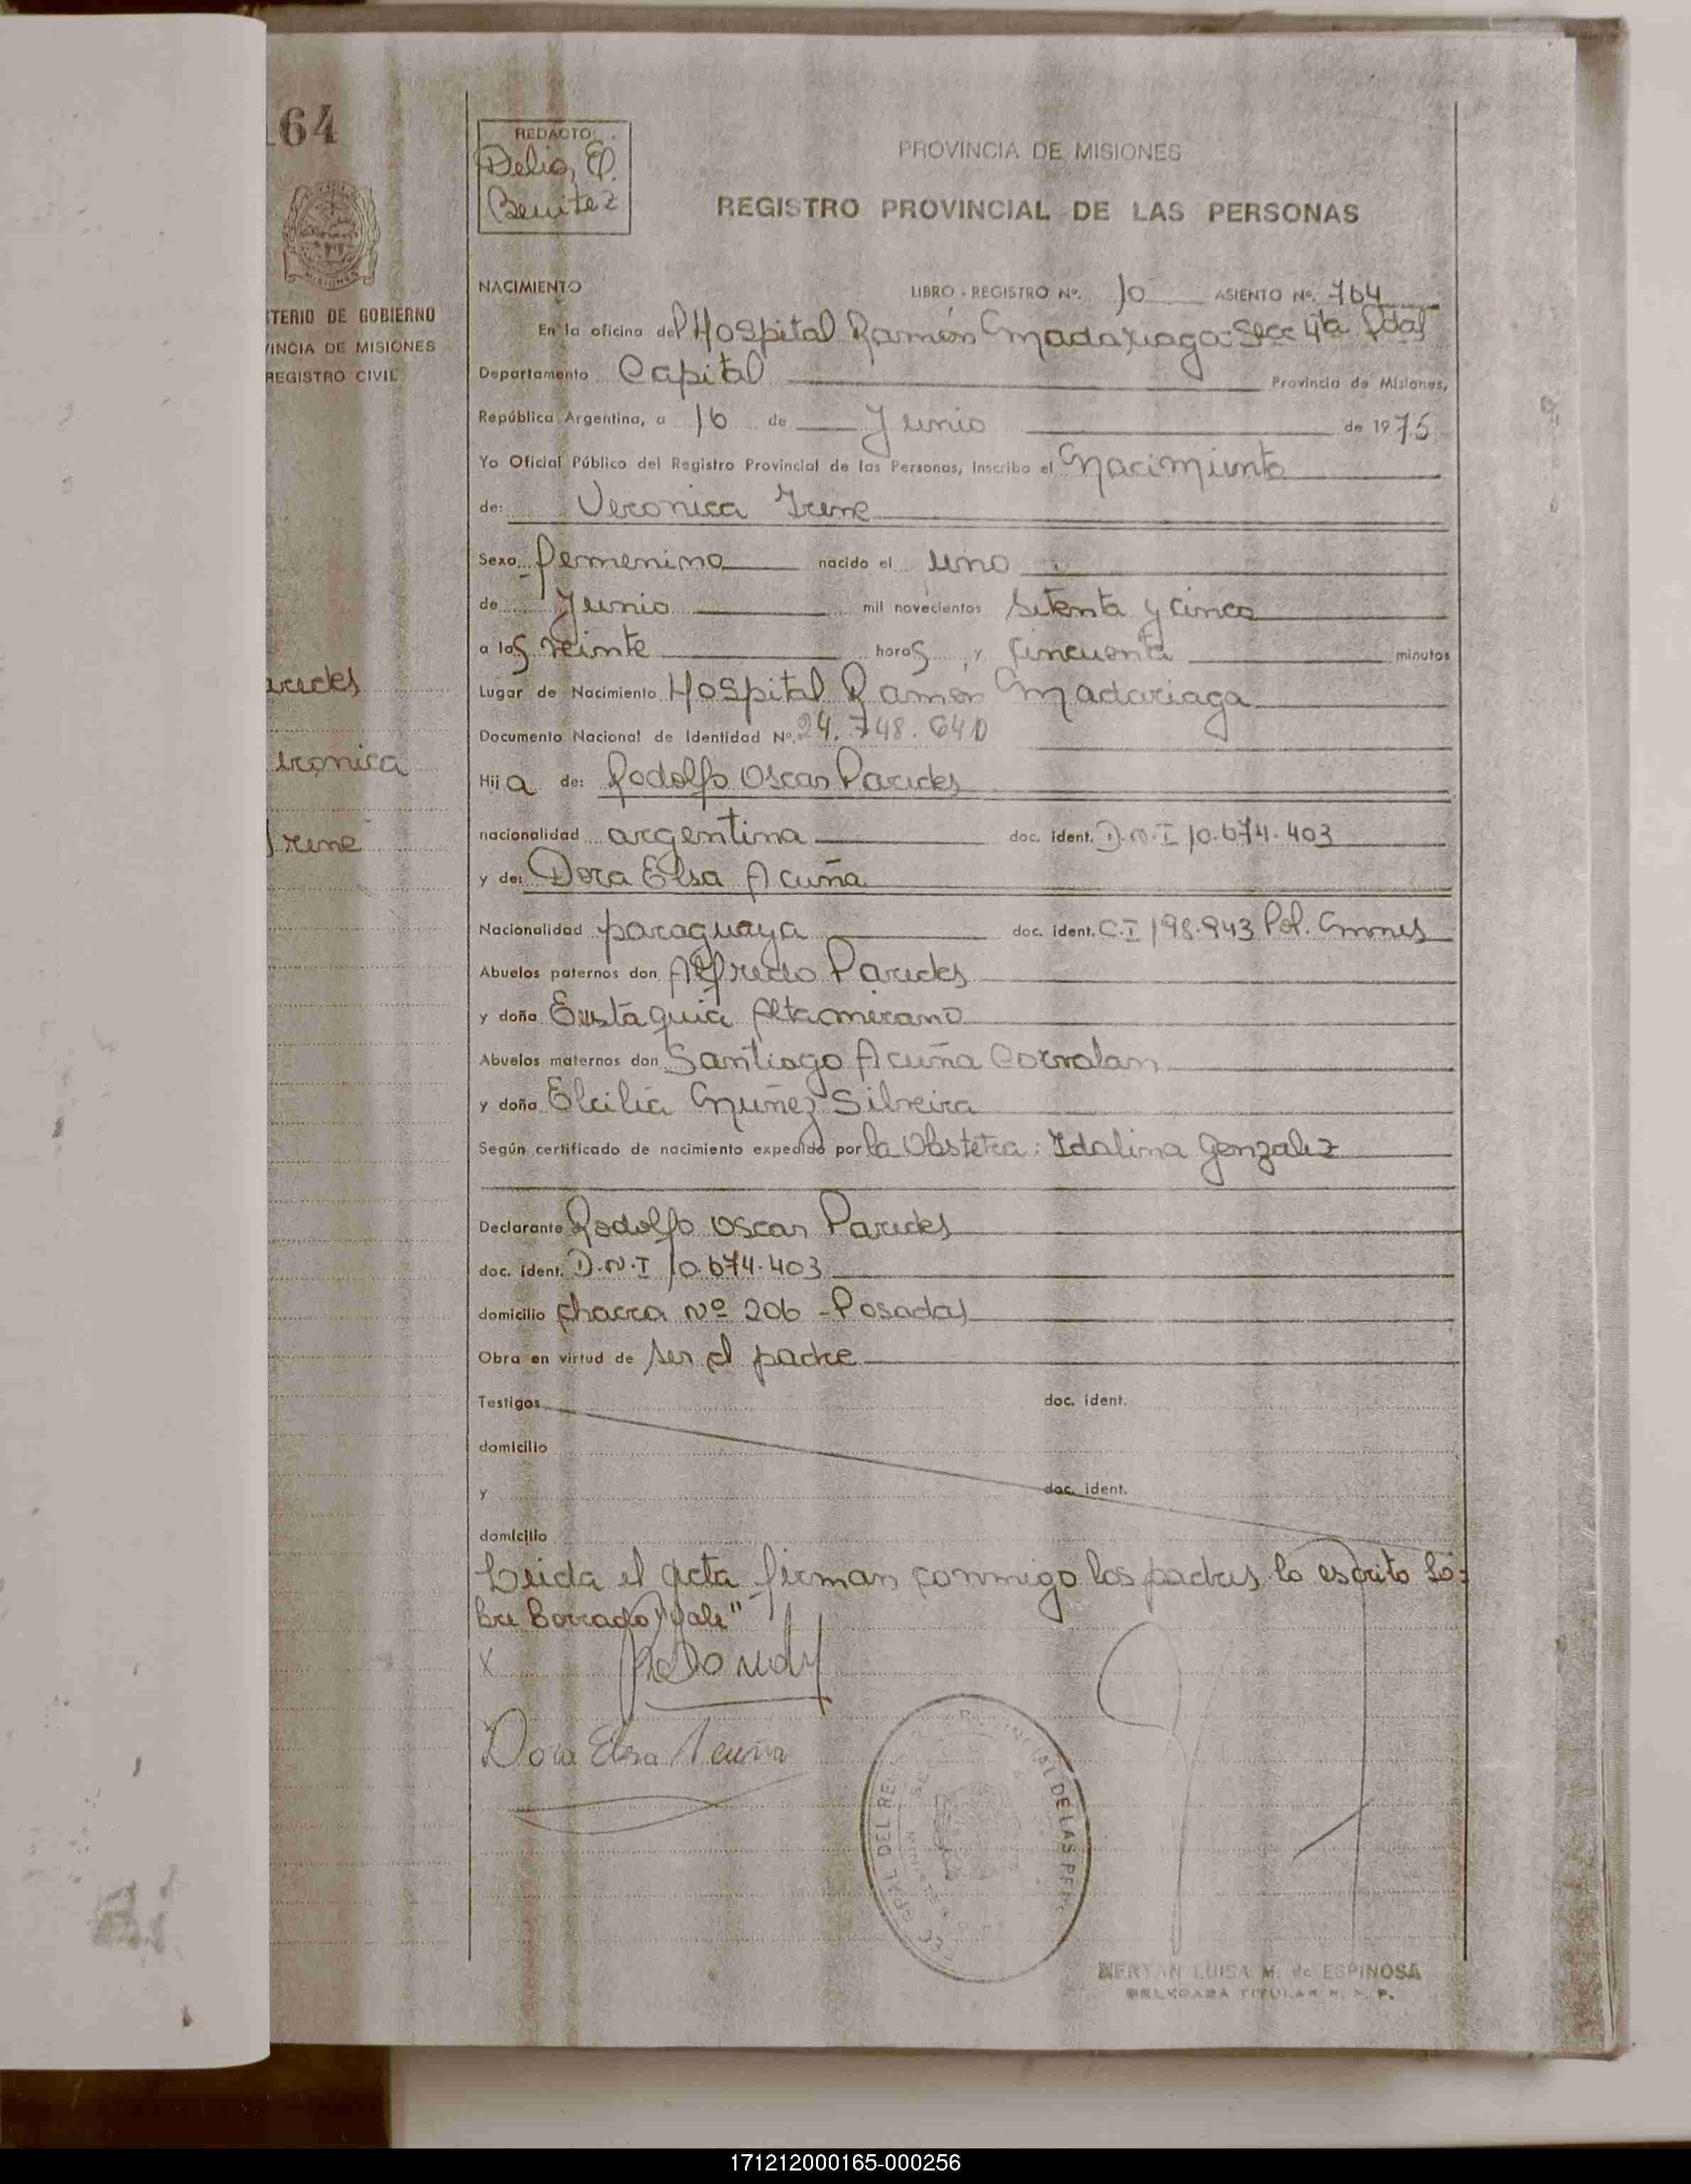 164
REDACTO:
Delio, E.
Benitez
PROVINCIA DE MISIONES
REGISTRO PROVINCIAL DE LAS PERSONAS
MISIONES
TERIO DE GOBIERNO
VINCIA DE MISIONES
REGISTRO CIVIL
aredes
eronica
Irene
NACIMIENTO LIBRO - REGISTRO Nº. 10 ASIENTO Nº. 764
En la oficina del Hospital Ramón Madariaga - Secc 4ta Pdas
Departamento Capital Provincia de Misiones,
República Argentina, a 16 de Junio de 1975
Yo Oficial Público del Registro Provincial de las Personas, Inscribo el Nacimiento
de: Veronica Irene
Sexo Femenino nacido el uno
de Junio mil novecientos setenta y cinco
a las veinte horas y cincuenta minutos
Lugar de Nacimiento Hospital Ramon Madariaga
Documento Nacional de Identidad Nº. 24.748.640
Hija de: Rodolfo Oscar Paredes
nacionalidad argentina doc. ident. D.N.I 10.674.403
y de: Dora Elsa Acuña
Nacionalidad paraguaya doc. ident. C.I 198.943 Pol. Mnes
Abuelos paternos don Alfredo Paredes
y doña Eustaquia Altamirano
Abuelos maternos don Santiago Acuña Corralan
y doña Elcilia Nuñez Silveira
Según certificado de nacimiento expedido por la Obstetra: Idalina Gonzalez
Declarante Rodolfo Oscar Paredes
doc. ident. D.N.I 10.674.403
domicilio chacra Nº 206 - Posadas
Obra en virtud de ser el padre
Testigos doc. ident.
domicilio
y doc. ident.
domicilio
Leida el acta firman conmigo los padres lo escrito so-
bre borrado "vale"
X
Dora Elsa Acuña
GRAL DEL REGISTRO PROVINCIAL DE LAS PER
LUISA M. de ESPINOSA
TITULAR
171212000165-000256